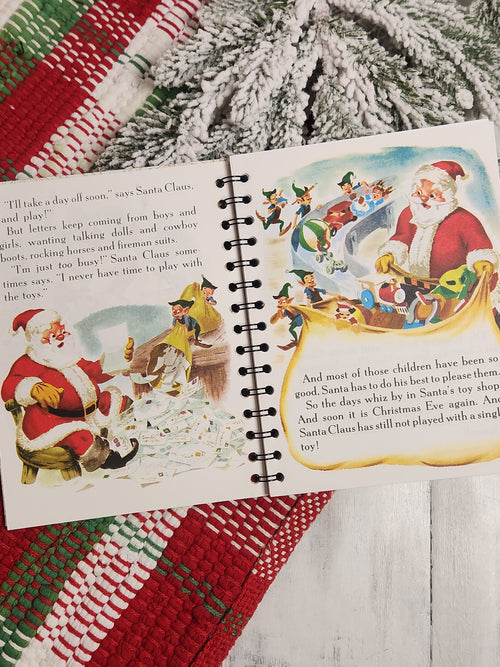 "I'll take a day off soon," says Santa Claus,
and play!"
But letters keep coming from boys and
girls, wanting talking dolls and cowboy
boots, rocking horses and fireman suits.
"I'm just too busy!" Santa Claus some
times says. "I never have time to play with
the toys."
And most of those children have been so
good, Santa has to do his best to please them.
So the days whiz by in Santa's toy shop.
And soon it is Christmas Eve again. And
Santa Claus has still not played with a singl
toy!